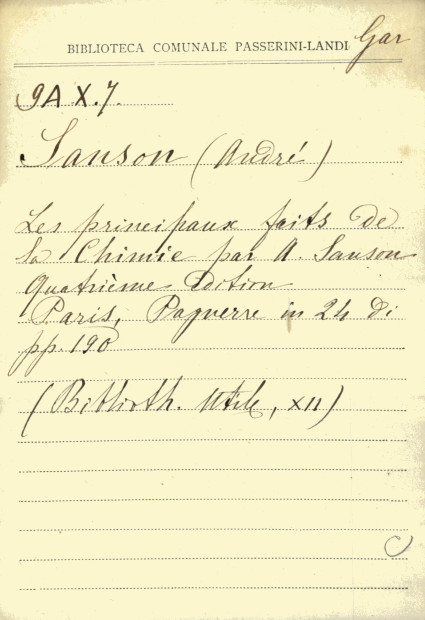 BIBLIOTECA COMUNALE PASSERINI-LANDI Gar
9A X.7.
Sanson (André)
Les principaux faits de
la Chimie par A. Sanson
Quatrième édition
Paris, Pagnerre in 24 di
pp. 190
(Biblioth. Utile, XII)